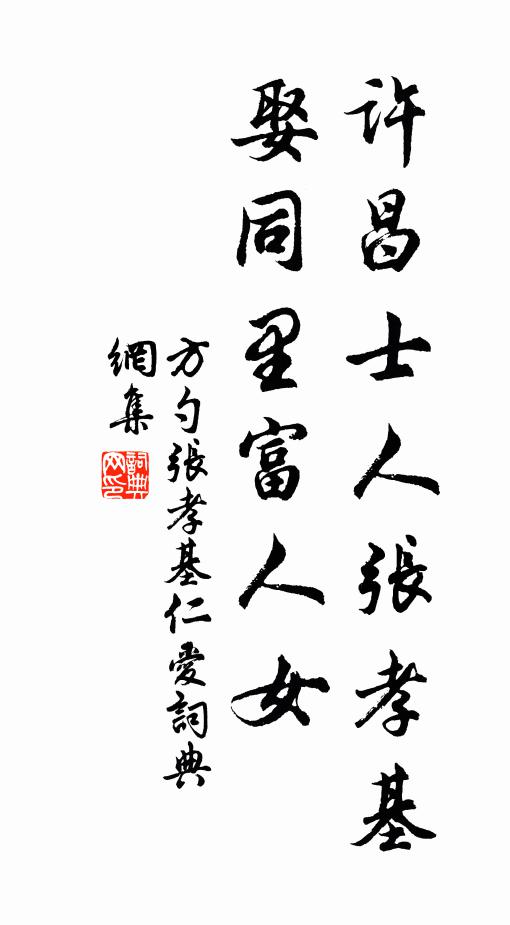 許昌士人張孝基
娶同里富人女
方勺張孝基仁愛詞典
網集
詞典
网印